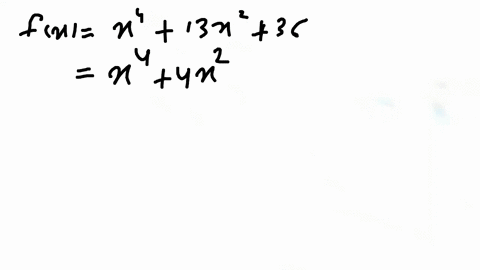 f(x) = x⁴ + 13x² + 36
= x⁴ + 4x²